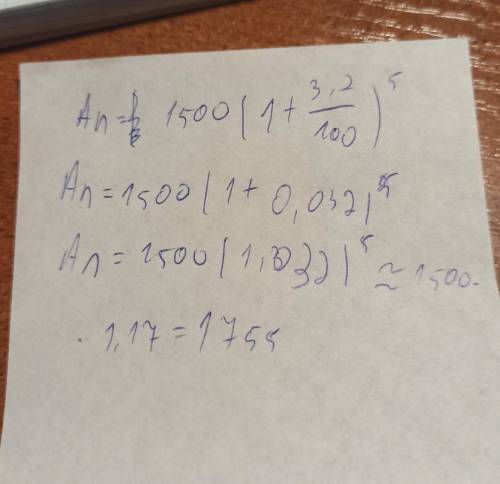 An = 1500 (1 + 3,2/100)^5
An = 1500 (1 + 0,032)^5
An = 1500 (1,032)^5 ≈ 1500·
· 1,17 = 1755